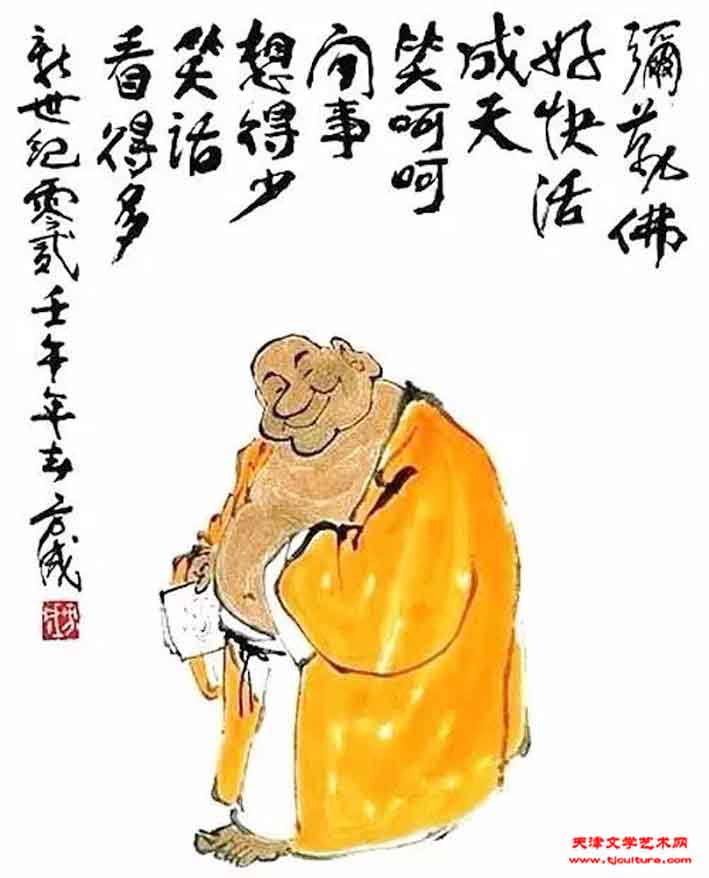 彌勒佛
好快活
成天
笑呵呵
闲事
想得少
笑话
看得多
新世纪零贰壬午年春 方成
天津文学艺术网
www.tjculture.com